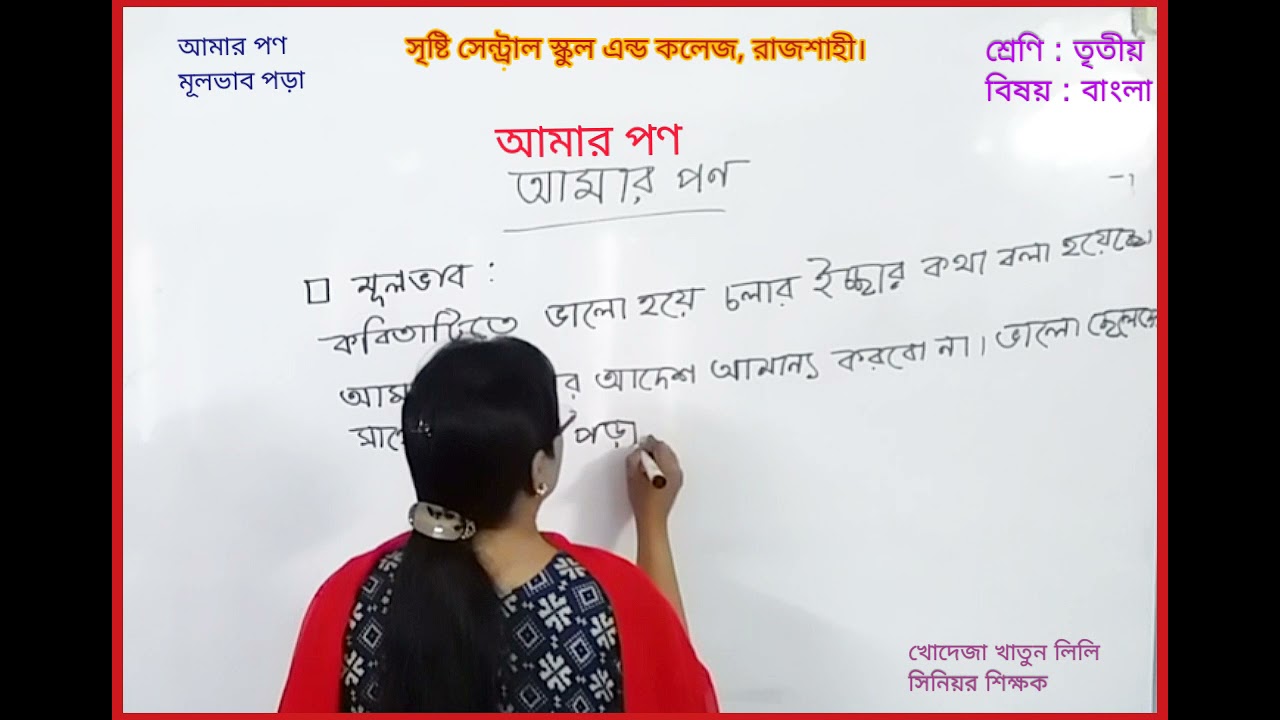 আমার পণ
মূলভাব পড়া
সৃষ্টি সেন্ট্রাল স্কুল এন্ড কলেজ, রাজশাহী।
শ্রেণি : তৃতীয়
বিষয় : বাংলা
আমার পণ
আমার পণ
মূলভাব :
কবিতাটিতে ভালো হয়ে চলার ইচ্ছার কথা বলা হয়েছে।
আদেশ আমান্য করবো না। ভালো ছেলেদের
পড়া
খোদেজা খাতুন লিলি
সিনিয়র শিক্ষক